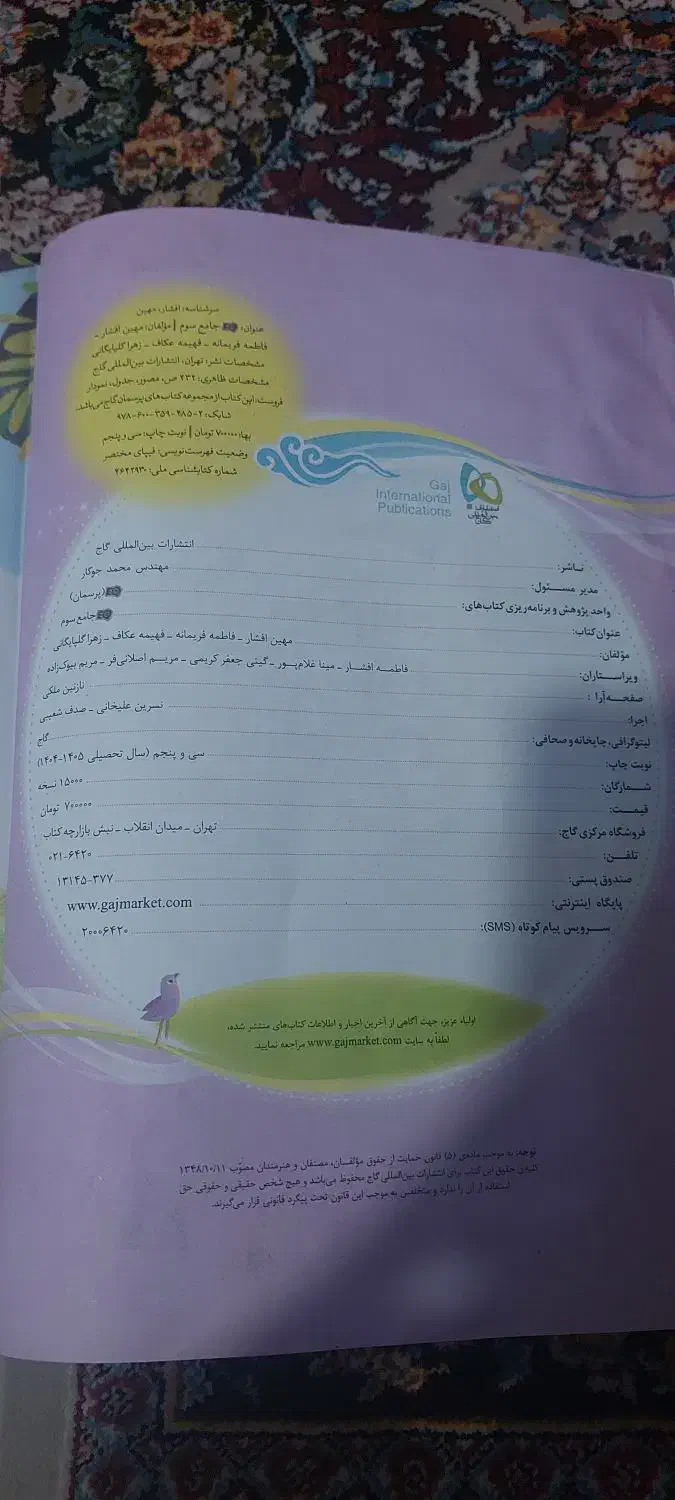 سرشناسه: افشار، مهین
عنوان: جامع سوم | مؤلفان: مهین افشار ـ
فاطمه فریمانه ـ فهیمه عکاف ـ زهرا گلپایگانی
مشخصات نشر: تهران، انتشارات بین‌المللی گاج
مشخصات ظاهری: ۲۳۲ ص، مصور، جدول، نمودار
فروست: این کتاب از مجموعه کتاب‌های پرسمان گاج می‌باشد.
شابک: ۲-۴۸۵-۳۵۹-۶۰۰-۹۷۸
بها: ۷۰۰۰۰۰ تومان | نوبت چاپ: سی و پنجم
وضعیت فهرست‌نویسی: فیپای مختصر
شماره کتابشناسی ملی: ۴۶۴۲۹۳۰
Gaj
International
Publications
انتشارات
بین‌المللی
گاج
ناشر: انتشارات بین‌المللی گاج
مدیر مسئول: مهندس محمد جوکار
واحد پژوهش و برنامه‌ریزی کتاب‌های: (پرسمان)
عنوان کتاب: جامع سوم
مؤلفان: مهین افشار ـ فاطمه فریمانه ـ فهیمه عکاف ـ زهرا گلپایگانی
ویراستاران: فاطمه افشار ـ مینا غلام‌پور ـ گیتی جعفر کریمی ـ مریم اصلانی‌فر ـ مریم بیوک‌زاده
صفحه‌آرا : نازنین ملکی
اجرا: نسرین علیخانی ـ صدف شعیبی
لیتوگرافی، چاپخانه و صحافی: گاج
نوبت چاپ: سی و پنجم (سال تحصیلی ۱۴۰۵-۱۴۰۴)
شمارگان: ۱۵۰۰۰ نسخه
قیمت: ۷۰۰۰۰۰ تومان
فروشگاه مرکزی گاج: تهران ـ میدان انقلاب ـ نبش بازارچه کتاب
تلفن: ۰۲۱-۶۴۲۰
صندوق پستی: ۱۳۱۴۵-۳۷۷
پایگاه اینترنتی: www.gajmarket.com
سرویس پیام کوتاه (SMS): ۲۰۰۰۶۴۲۰
اولیاء عزیز، جهت آگاهی از آخرین اخبار و اطلاعات کتاب‌های منتشر شده،
لطفاً به سایت www.gajmarket.com مراجعه نمایید.
توجه: به موجب ماده‌ی (۵) قانون حمایت از حقوق مؤلفان، مصنفان و هنرمندان مصوّب ۱۳۴۸/۱۰/۱۱
کلیه‌ی حقوق این کتاب برای انتشارات بین‌المللی گاج محفوظ می‌باشد و هیچ شخص حقیقی و حقوقی حق
استفاده از آن را ندارد و متخلفین به موجب این قانون تحت پیگرد قانونی قرار می‌گیرند.